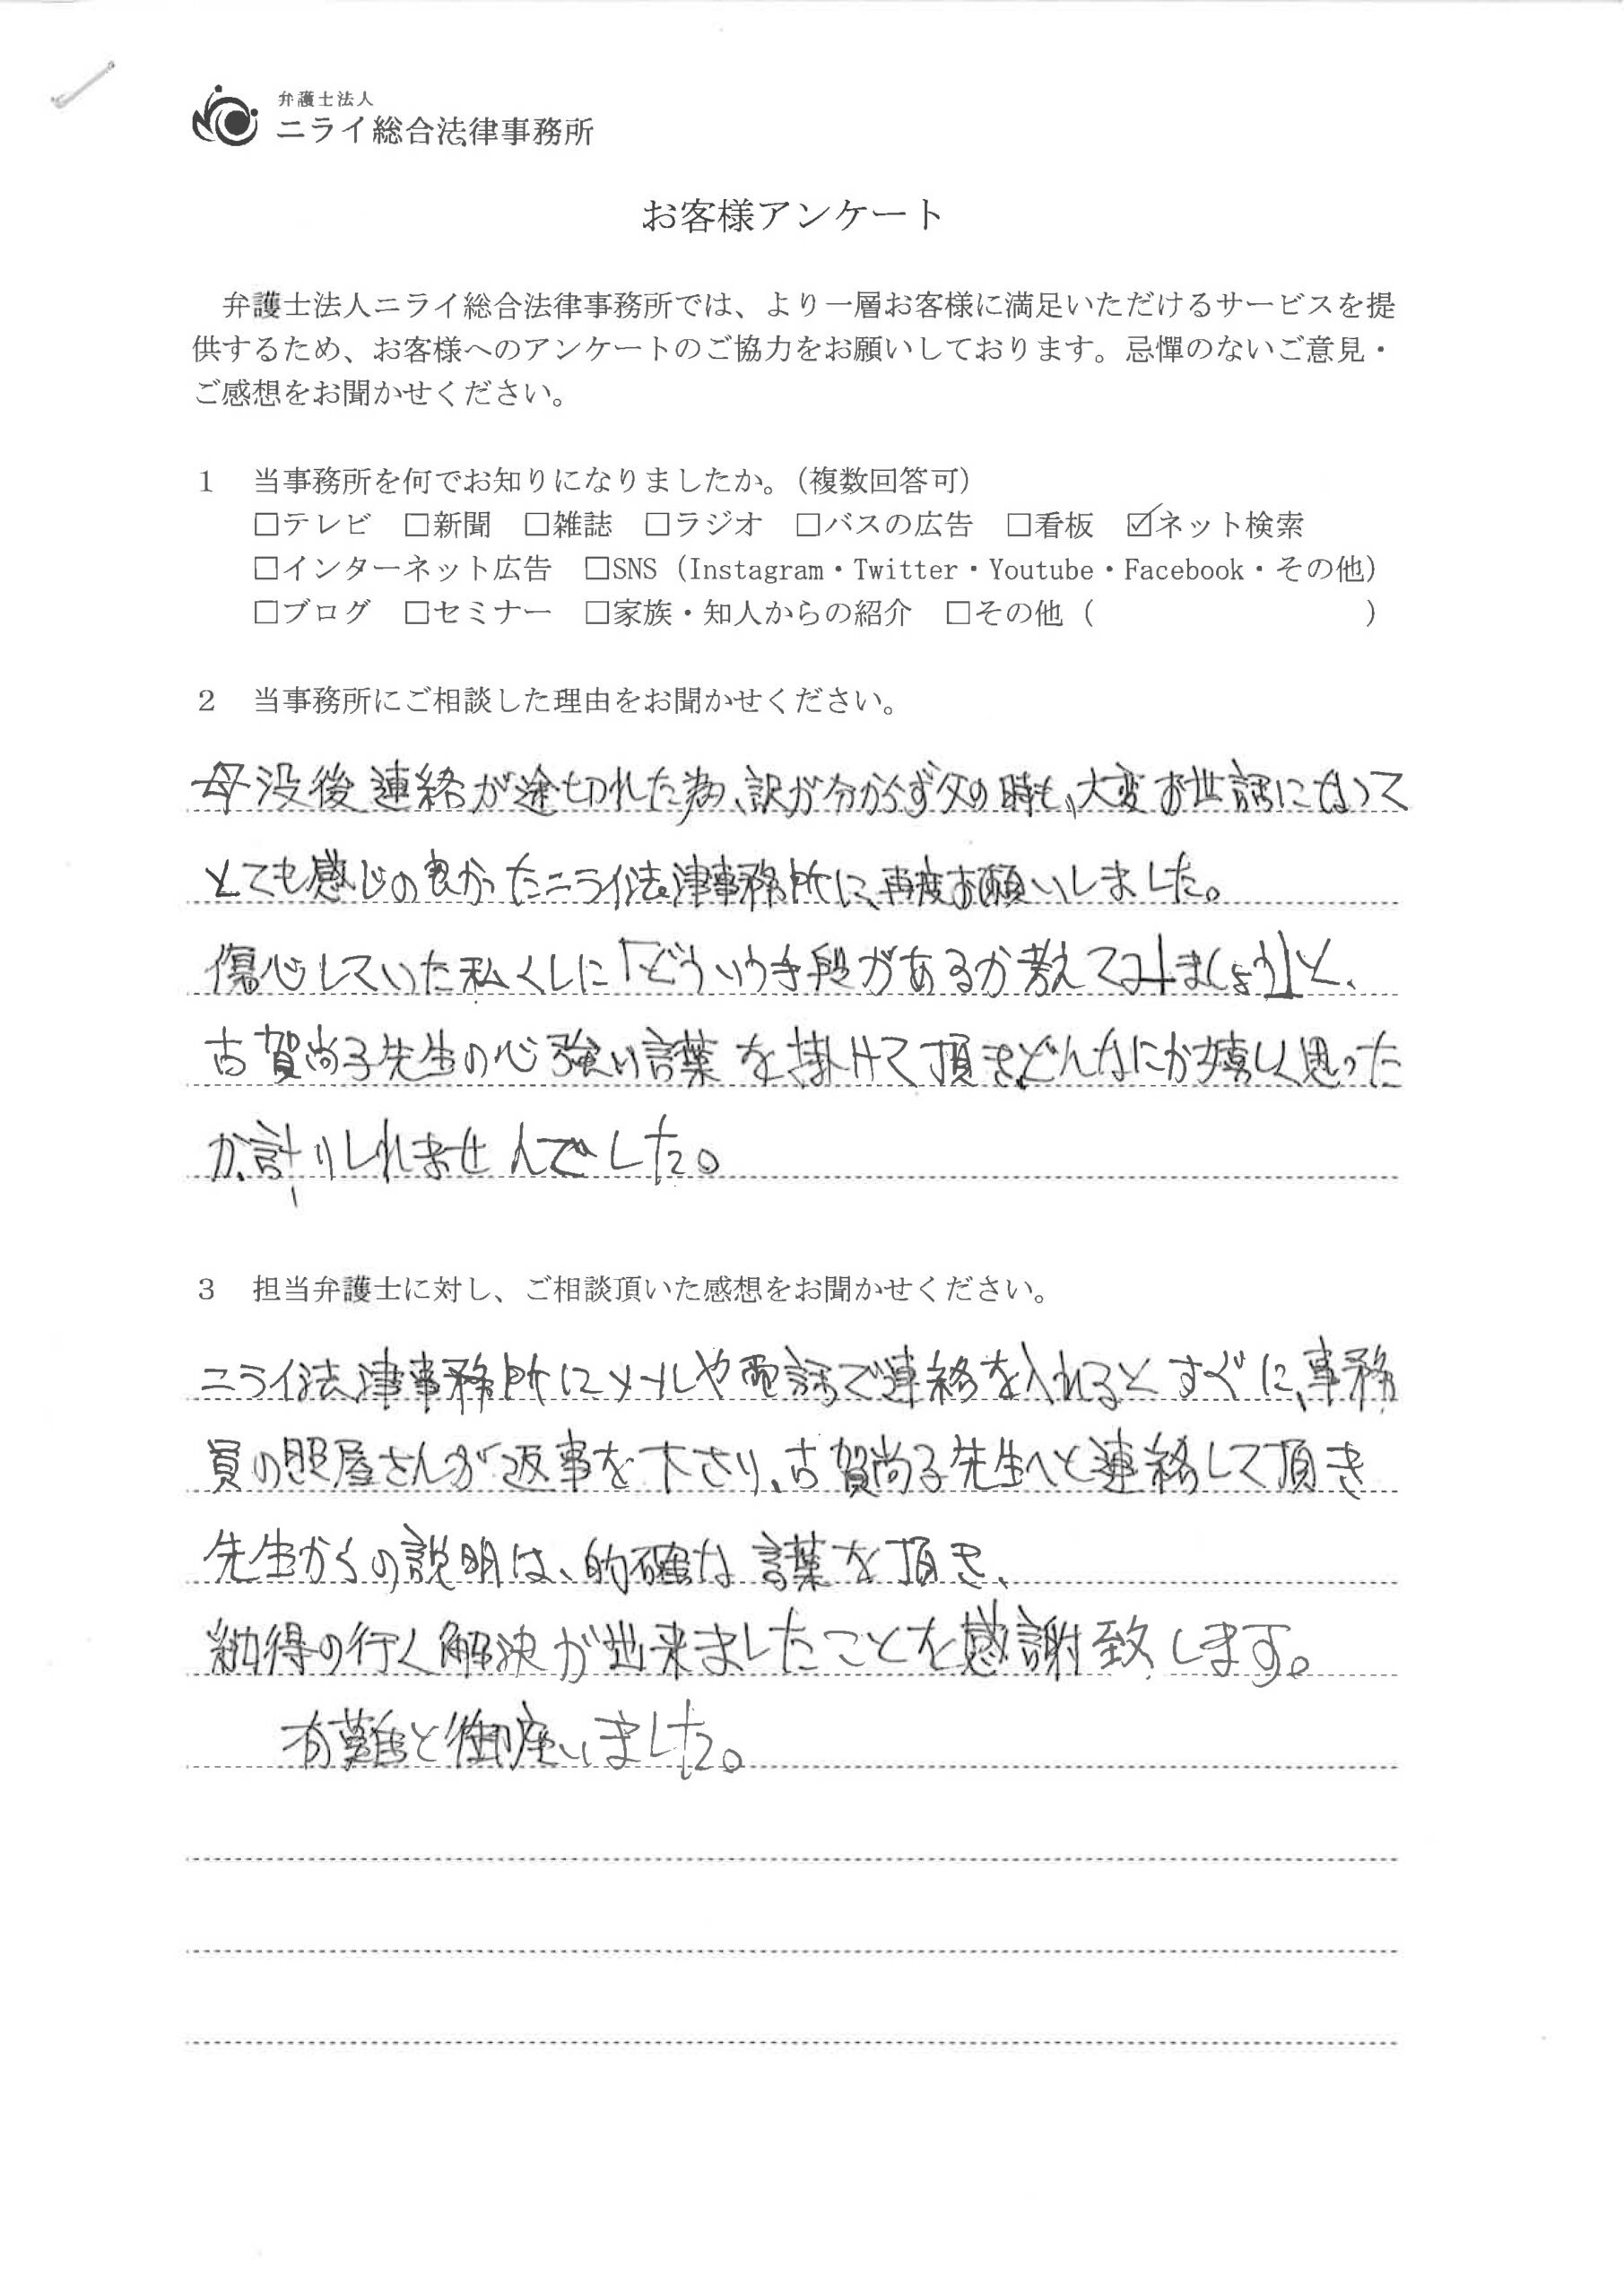 弁護士法人
ニライ総合法律事務所
お客様アンケート
弁護士法人ニライ総合法律事務所では、より一層お客様に満足いただけるサービスを提
供するため、お客様へのアンケートのご協力をお願いしております。忌憚のないご意見・
ご感想をお聞かせください。
１　当事務所を何でお知りになりましたか。（複数回答可）
□テレビ　□新聞　□雑誌　□ラジオ　□バスの広告　□看板　☑ネット検索
□インターネット広告　□SNS（Instagram・Twitter・Youtube・Facebook・その他）
□ブログ　□セミナー　□家族・知人からの紹介　□その他（　　　　　　　　　）
２　当事務所にご相談した理由をお聞かせください。
母没後連絡が途切れた為、訳が分からず父の時も、大変お世話になって
とても感じの良かったニライ法律事務所に、再度お願いしました。
傷心していた私くしに「どういう手段があるか考えてみましょう」と、
古賀尚子先生の心強い言葉を掛けて頂き、どんなにか嬉しく思った
か、計りしれませんでした。
３　担当弁護士に対し、ご相談頂いた感想をお聞かせください。
ニライ法律事務所にメールや電話で連絡を入れるとすぐに、事務
員の照屋さんが返事を下さり、古賀尚子先生へと連絡して頂き
先生からの説明は、的確な言葉を頂き、
納得の行く解決が出来ましたことを感謝致します。
有難と御座いました。